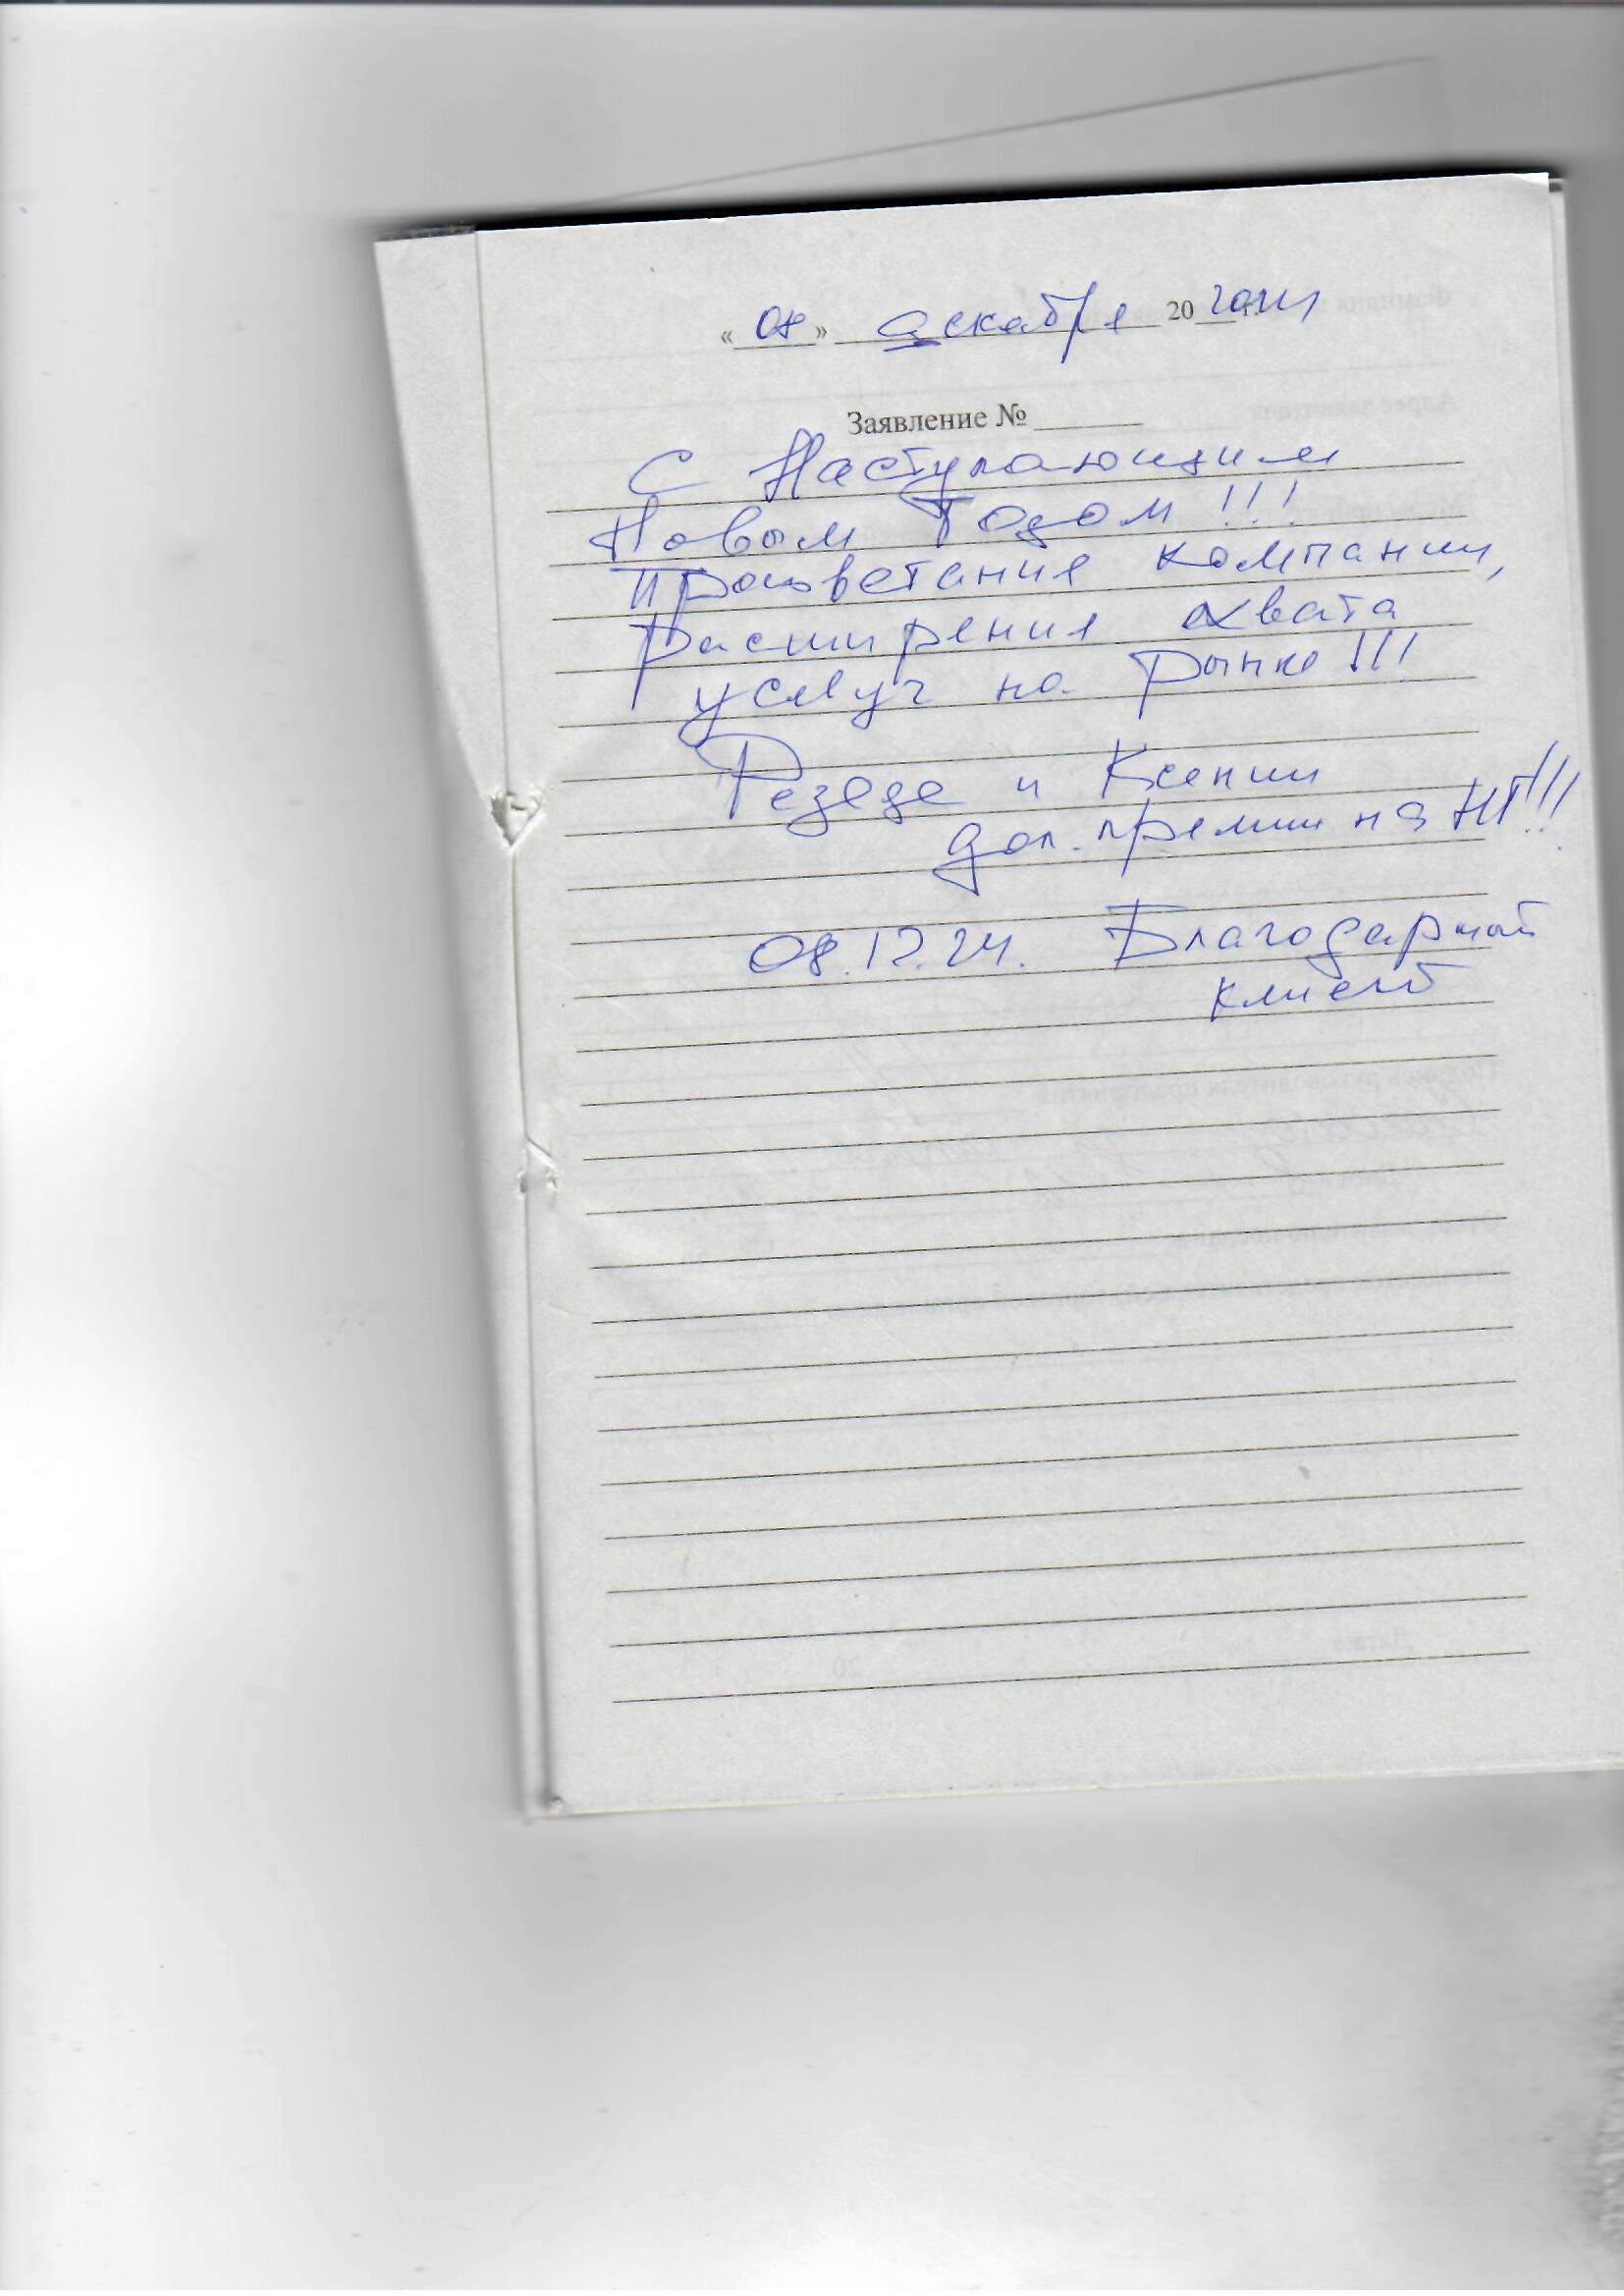 « 08 » декабря 20 2024 г.
Заявление №
С Наступающим
Новым Годом !!!
Процветания компании,
Расширения охвата
услуг на рынке !!!
Резеде и Ксении
доп. премии на НГ!!!
08.12.24. Благодарный
клиент